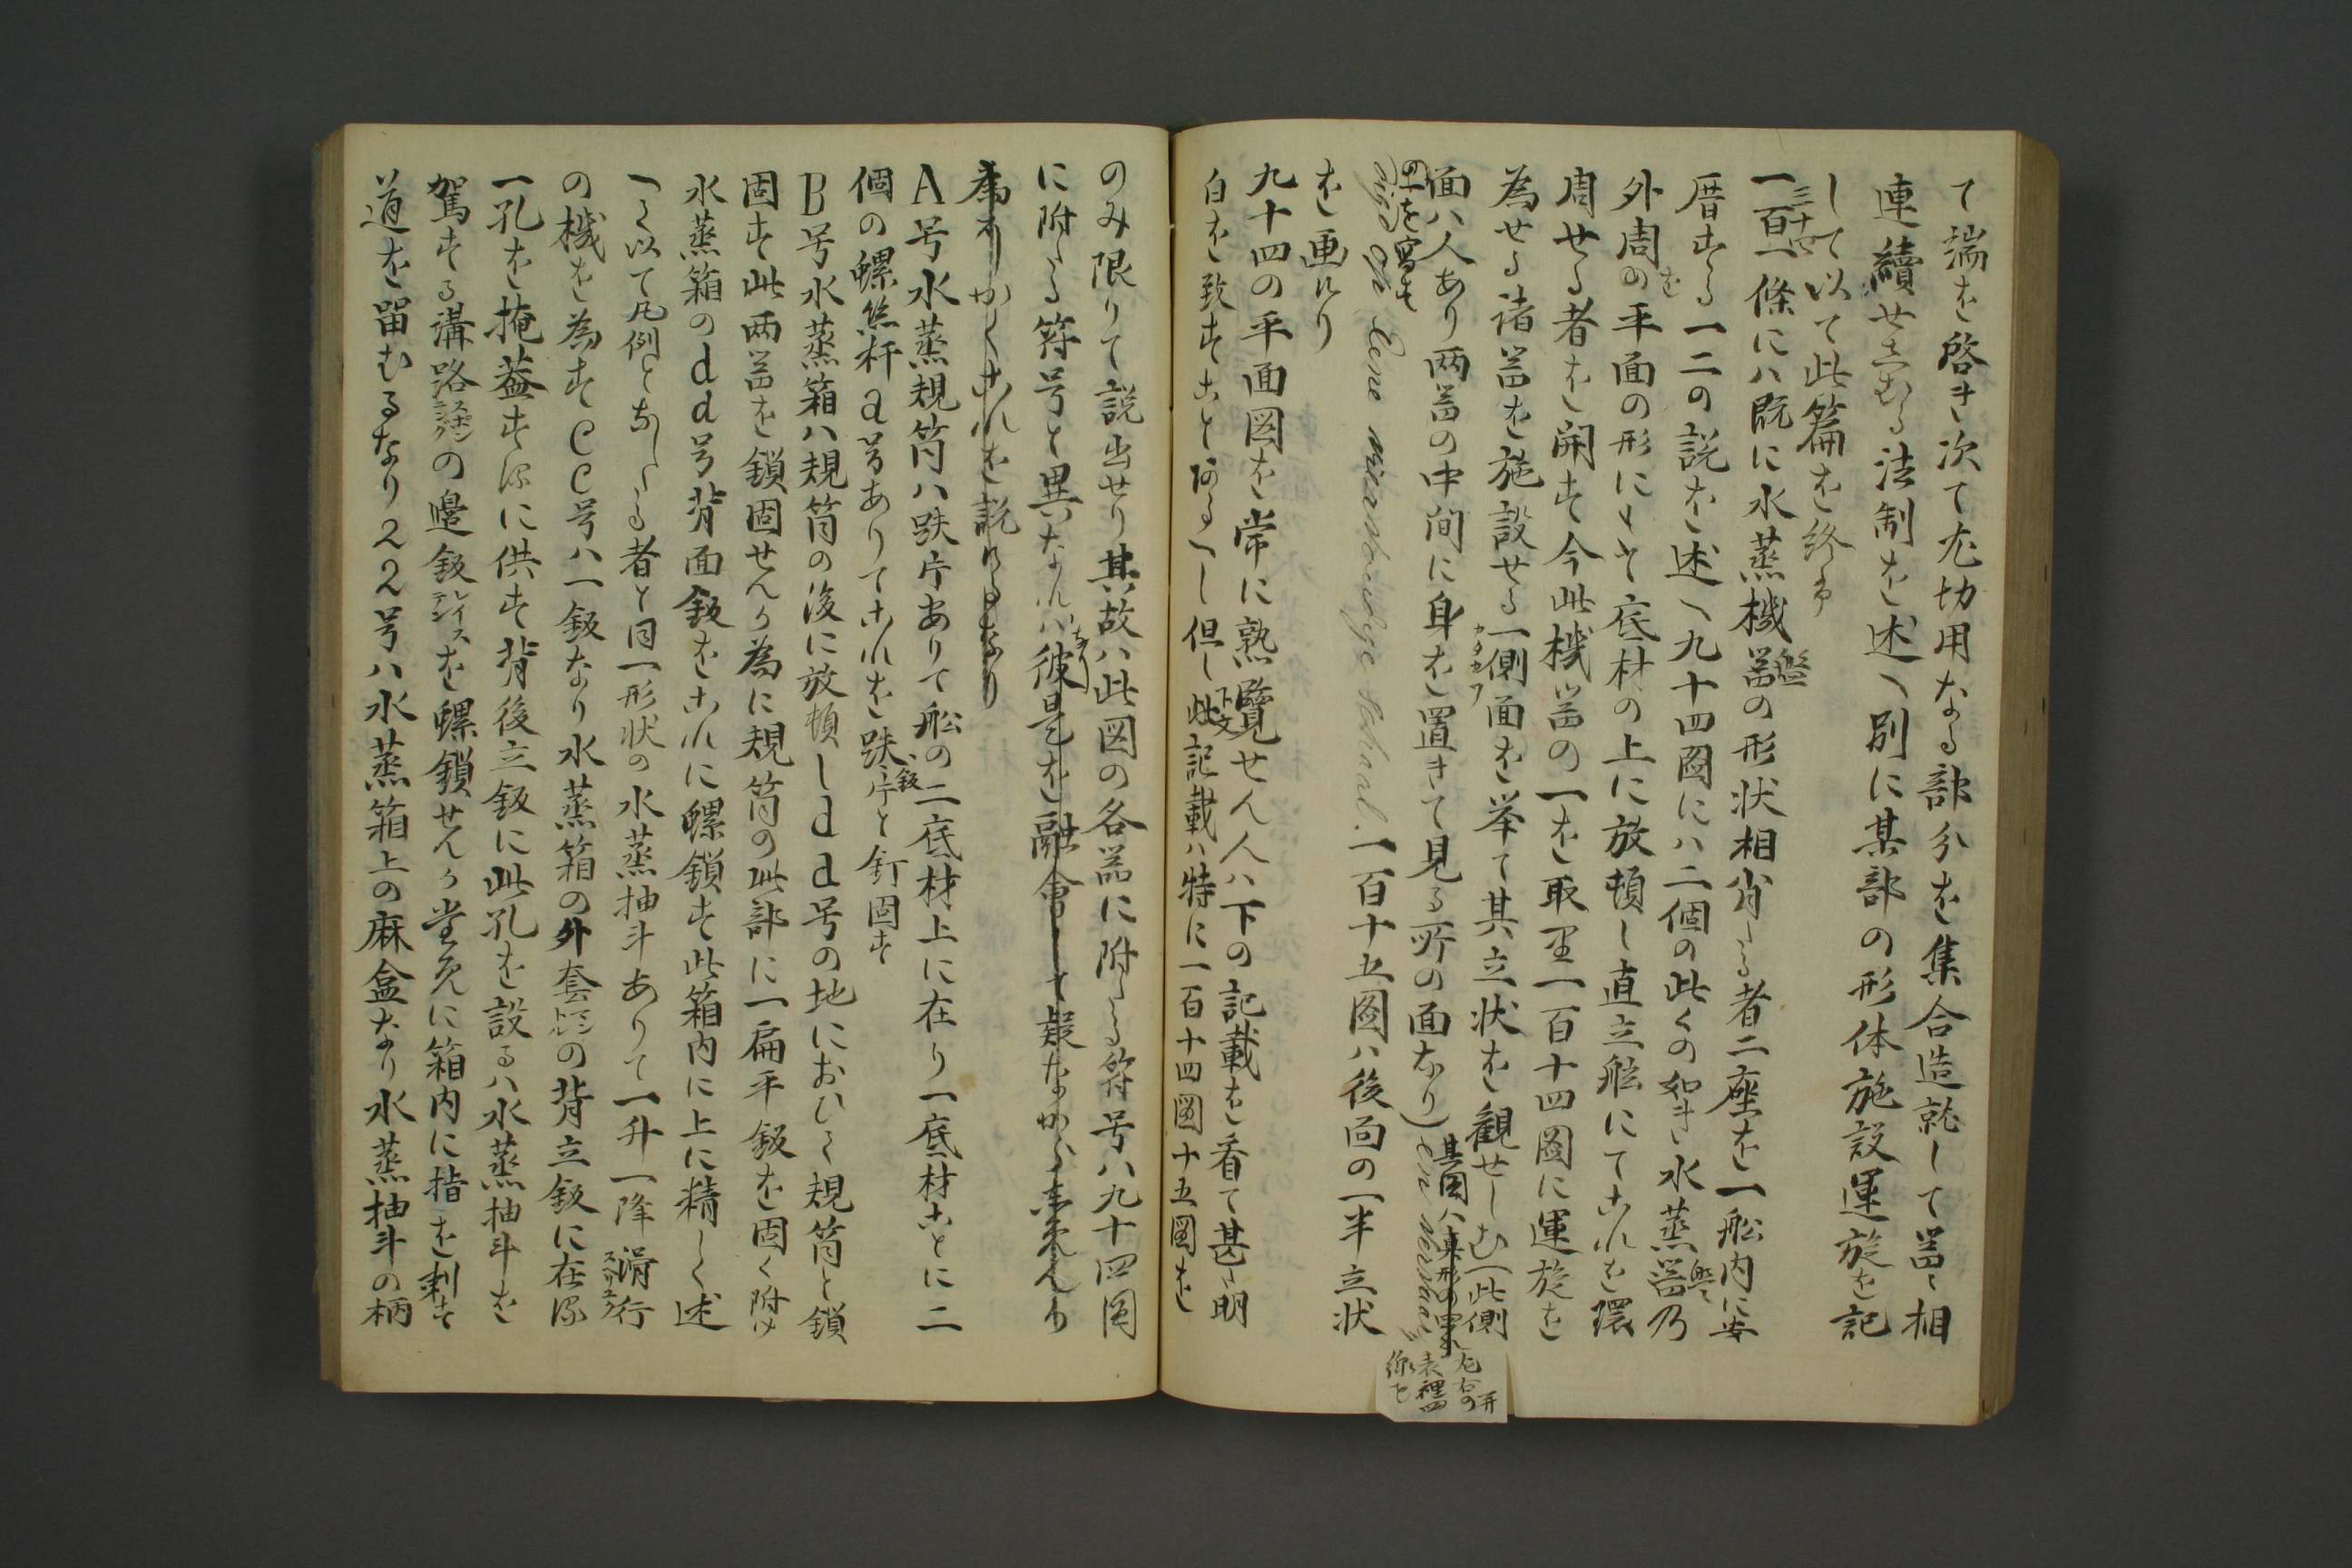 て端を啓き次て左切用なる部分を集合造就して器々相
連續せむる法制を述へ別に某部の形体施設運旋を記
して以て此篇を終ふ
三十四
一百一條にハ既に水蒸機器の形状相肖たる者二座を一舩内に安
盤
厝する一二の説を述へ九十四圖にハ二個の此くの如き水蒸器乃
外周の平面の形にして底材の上に放頓し直立舩にてこれを環
を
周せる者を開す今此機器の一を取里一百十四圖に運旋を
為せる諸器を施設せる一側面を举て其立状を観せしむ(此側
面ハ人あり两器の中間に身を置きて見る所の面なり)
の一を寫す
左右の
表裡四
一百十五圖ハ後面の一半立状
を画けり
九十四の平面図を常に熟覽せん人ハ下の記載を看て甚た明
白を致すことあるへし但し 記載ハ特に一百十四圖十五圖を
下文
のみ限りて説出せり其故ハ此図の各器に附たる符号ハ九十四図
に附たる符号と異なれハ彼是を融會して疑なから
為なりかくこれを説けるなり
A号水蒸規筒ハ趺片ありて舩の二底材上に在り一底材ことに二
個の螺絲杆a号ありてこれを趺片と釘固す
鈑
B号水蒸箱ハ規筒の後に放頓しdd号の地におひて規筒と鎖
固す此两器を鎖固せんか為に規筒の此部に一扁平鈑を固く附け
水蒸箱のdd号背面鈑をこれに螺鎖す此箱内に上に精しく述
へて以て凡例となしたる者と同一形状の水蒸抽斗ありて一升一降滑行
の機を為すCC号ハ一鈑なり水蒸箱の外套マントルの背立鈑に在る
一孔を掩蓋する に供す背後立鈑に此孔を設るハ水蒸抽斗を
駕する溝路 の邊鈑 を螺鎖せんか に箱内に指を刺す
道を留むるなり22号ハ水蒸箱上の麻盒なり水蒸抽斗の柄